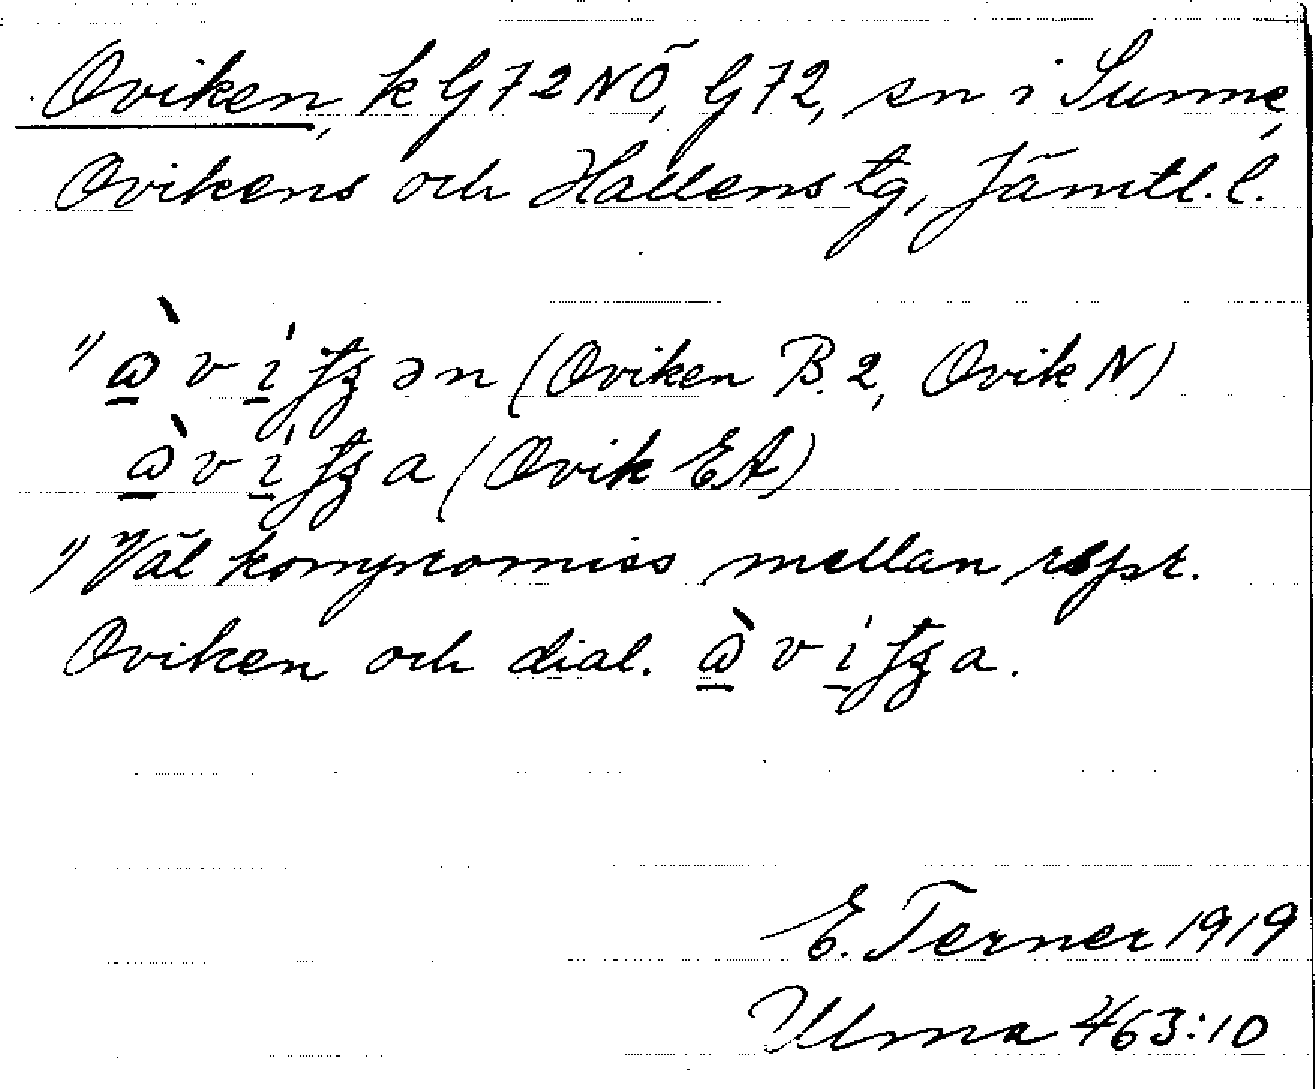 Oviken, k G72NÖ, G72, sn i Sunne,
Ovikens och Hallens tg, Jämtl. l.
1) (Oviken B. 2, Ovik N)
(Ovik EA)
1) Väl kompromiss mellan rspr.
Oviken och dial.
E. Terner 1919
Ulma 463:10